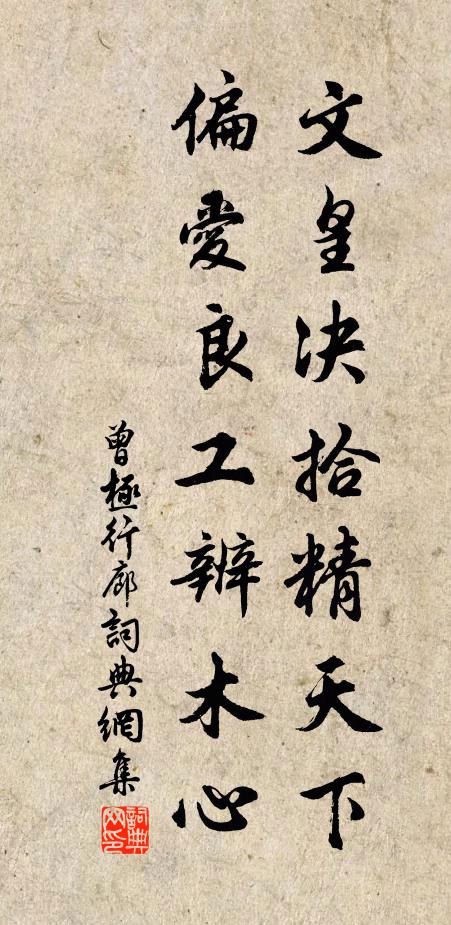 文皇决拾精天下
偏愛良工辨木心
曾極行廊詞典網集
詞典网印